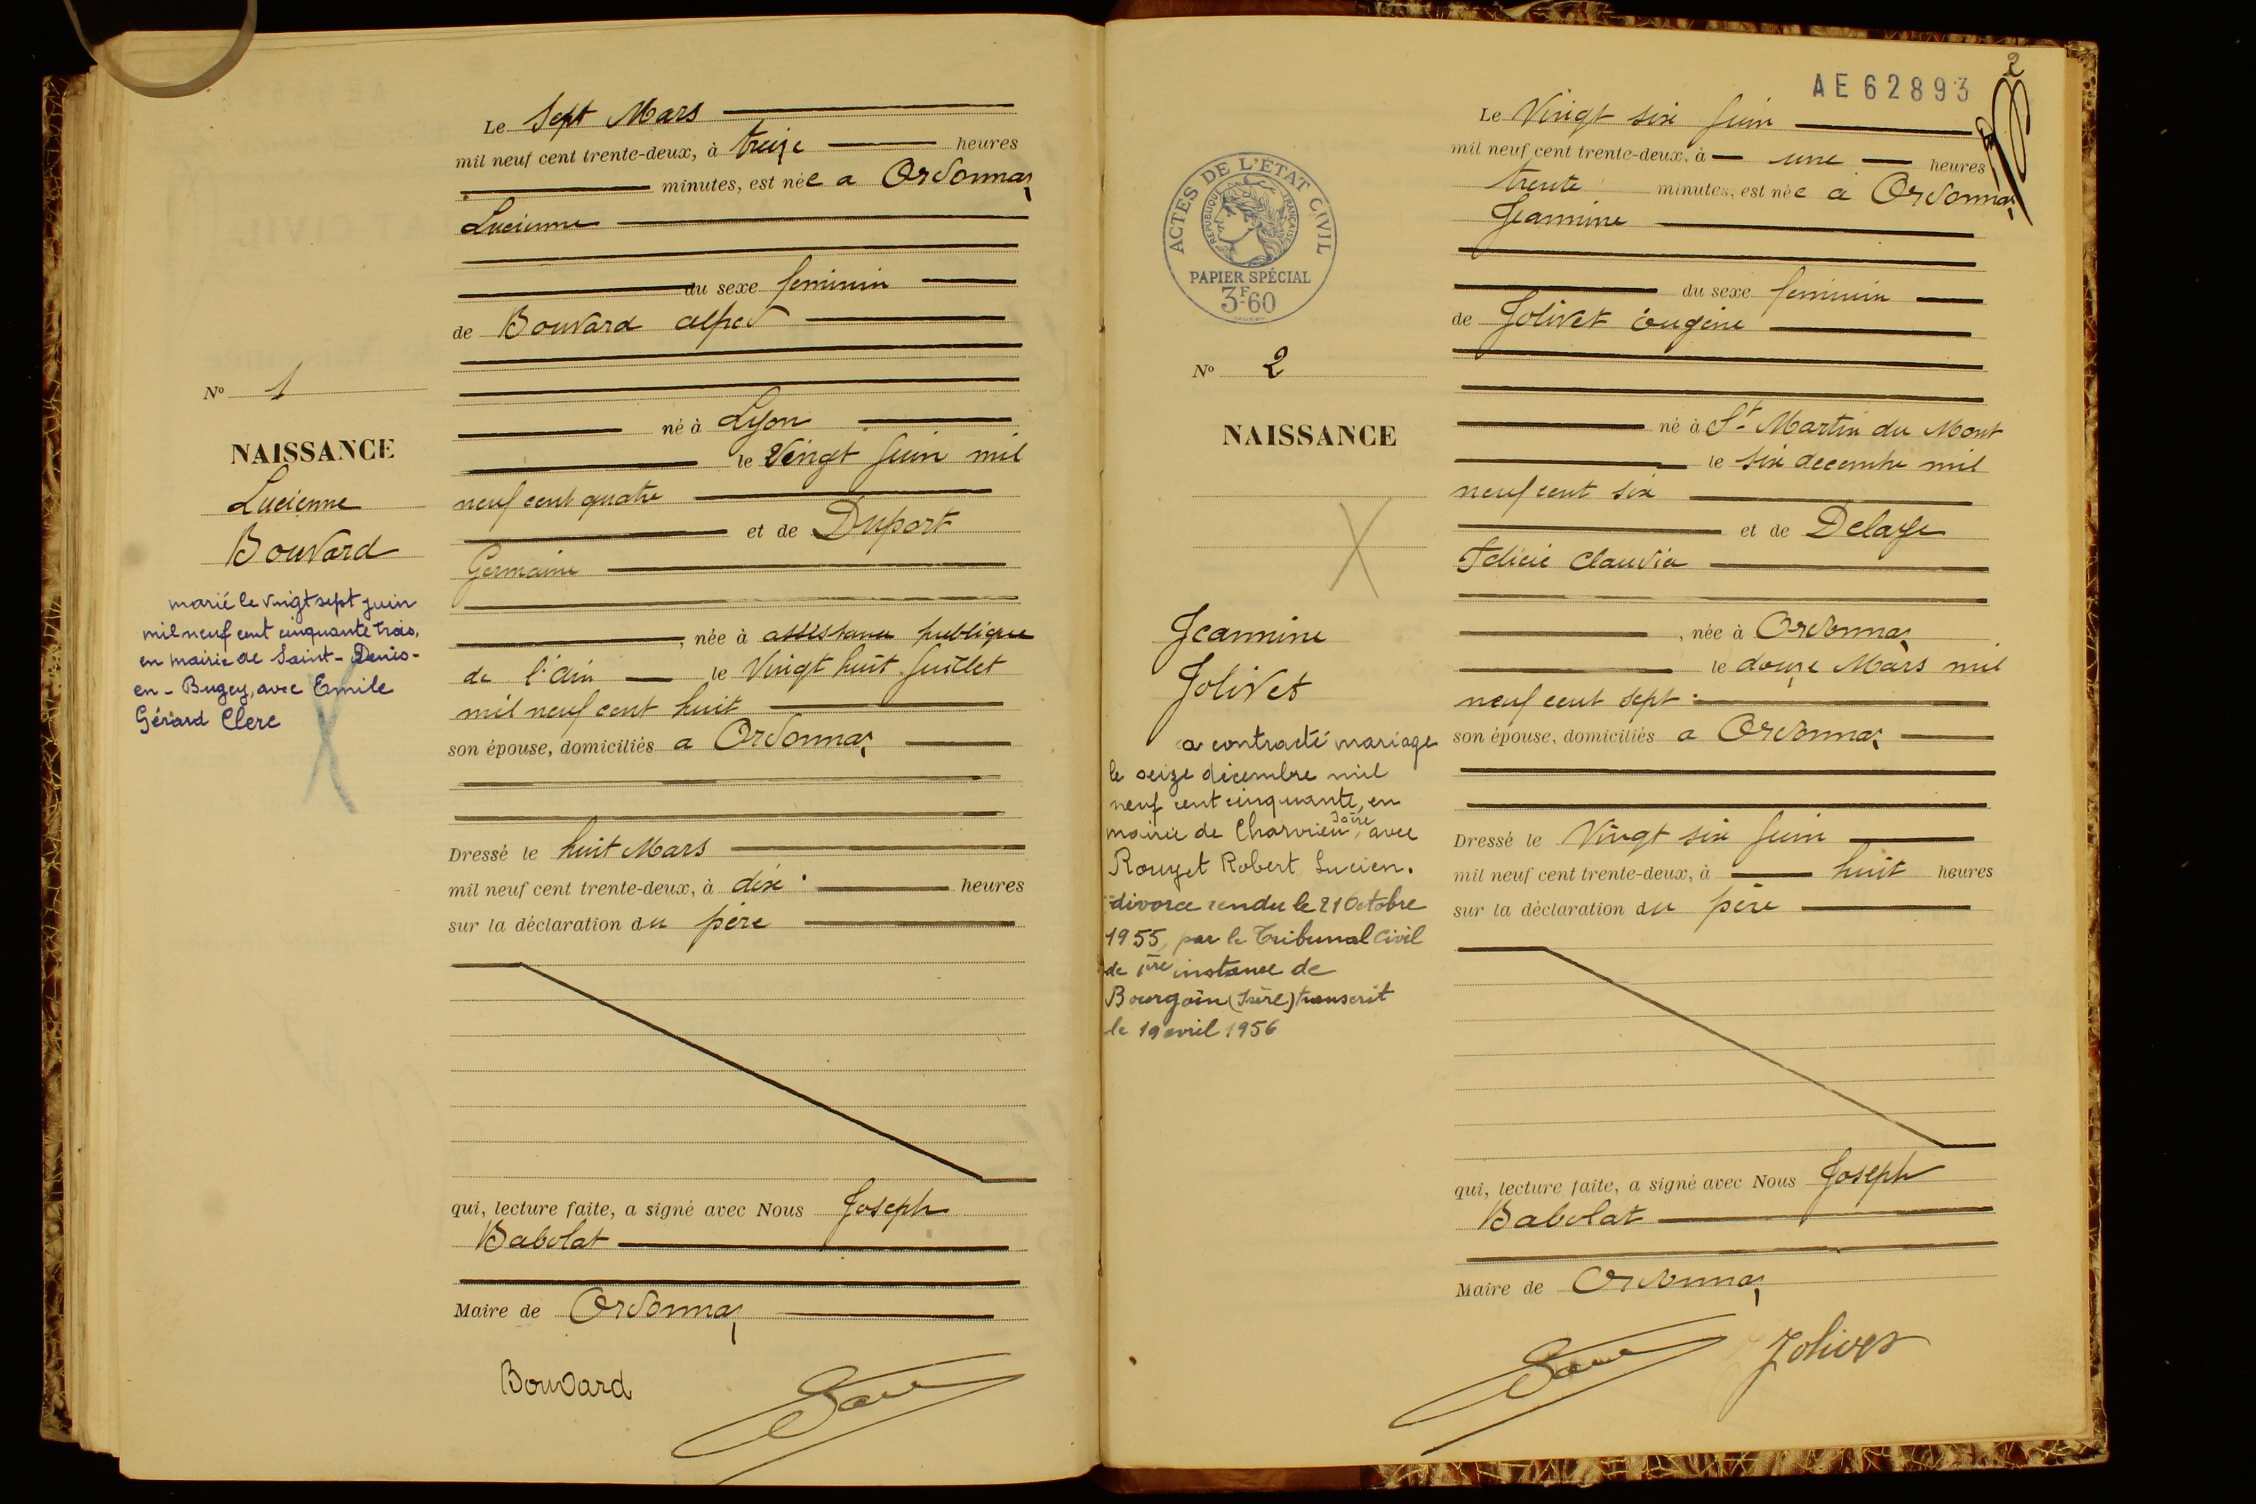 Le Sept Mars
mil neuf cent trente-deux, à treize heures
minutes, est née a Ordonnaz
Lucienne
du sexe feminin
de Bouvard alfred
né à Lyon
le Vingt Juin mil
neuf cent quatre
et de Duport
Germaine
, née à assistance publique
de l'ain le Vingt huit Juillet
mil neuf cent huit
son épouse, domiciliés a Ordonnaz
Dressé le huit Mars
mil neuf cent trente-deux, à dix heures
sur la déclaration du père
qui, lecture faite, a signé avec Nous Joseph
Babolat
Maire de Ordonnaz
Bouvard
No 1
NAISSANCE
Lucienne
Bouvard
marié le vingt sept juin
mil neuf cent cinquante trois,
en mairie de Saint-Denis-
en-Bugey, avec Emile
Gérard Clerc
2
AE62893
Le Vingt six Juin
mil neuf cent trente-deux, à une heures
trente minutes, est née a Ordonnaz
Jeannine
du sexe feminin
de Jolivet Eugène
né à St Martin du Mont
le six decembre mil
neuf cent six
et de Delaye
Félicie Claudia
, née à Ordonnaz
le douze Mars mil
neuf cent sept
son épouse, domiciliés a Ordonnaz
Dressé le Vingt six Juin
mil neuf cent trente-deux, à huit heures
sur la déclaration du père
qui, lecture faite, a signé avec Nous Joseph
Babolat
Maire de Ordonnaz
Jolivet
ACTES DE L'ÉTAT CIVIL
RÉPUBLIQUE FRANÇAISE
PAPIER SPÉCIAL
3F60
No 2
NAISSANCE
Jeannine
Jolivet
a contracté mariage
le seize décembre mil
neuf cent cinquante, en
mairie de Charvieu Isère, avec
Rouyet Robert Lucien.
divorce rendu le 21 Octobre
1955, par le Tribunal Civil
de 1ère instance de
Bourgoin (Isère) transcrit
le 19 avril 1956